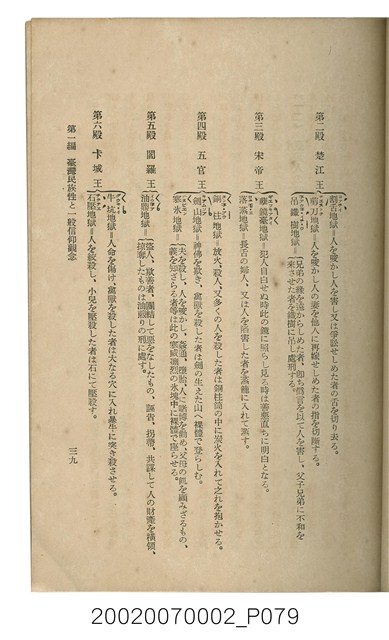 第二殿 楚江王
割舌地獄=人を唆かし人を害し又は爭訟せしめた者の舌を切り去る。
剪刀地獄=人を唆かし人の妻を他人に再嫁せしめた者の指を切斷する。
吊鐵樹地獄=兄弟の緣を淡からしめた者、卽ち讒言を以て人を害し、父子兄弟に不和を
來させた者を鐵樹に吊し處刑する。
第三殿 宋帝王
孽鏡臺地獄=犯人自白せぬ時此の鏡に照らし見る時は善惡直ちに明白となる。
落蒸地獄=長舌の婦人、又は人を陷害した者を蒸籠に入れて蒸す。
第四殿 五官王
銅柱地獄=放火、殺人、又多くの人を殺した者は銅柱筒の中に炭火を入れて之れを抱かせる。
劍山地獄=神佛を欺き、禽獸を殺した者は劍の生えた山へ裸體で登らしむ。
寒氷地獄=夫を殺し、人を唆かし、姦通、墮胎、人に賭博を勸め、父母の恩を顧みざるもの、
義を知ざる者等は此の寒威强烈の氷塊中に裸體で座らせる。
第五殿 閻羅王
油鍋地獄=盜人、獄舍者、團結して惡をなしたもの、誣吿、拐帶、共謀して人の財產を橫領、
掠奪したものは油煎りの刑に處す。
第六殿 卞城王
牛坑地獄=人命を傷け、禽獸を殺した者は大なる穴に入れ轟牛に突き殺させる。
石壓地獄=人を絞殺し、小兒を壓殺した者は石にて壓殺す。
第一編 臺灣民族性と一般信仰觀念
三九
20020070002_P079